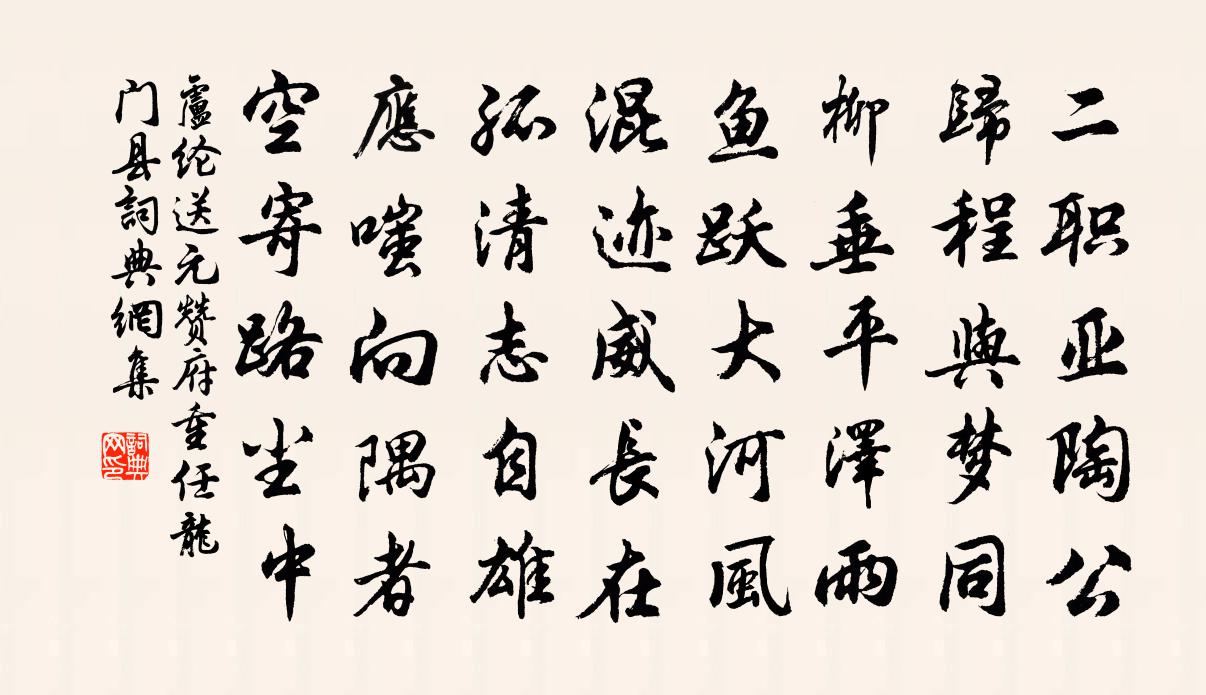 二职亚陶公
歸程與梦同
柳垂平澤雨
鱼跃大河風
混迹威長在
孤清志自雄
應嗤向隅者
空寄路尘中
盧纶送元赞府重任龍
门县詞典網集
詞典
网印